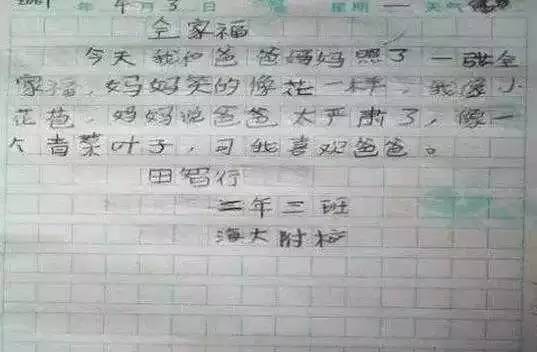 年 4 月 3 日 星期一 天气
全家福
今天我和爸爸妈妈照了一张全
家福，妈妈笑的像花一样，我像小
花苞，妈妈说爸爸太严肃了，像一
个青菜叶子，可我喜欢爸爸。
田智行
二年三班
海大附校